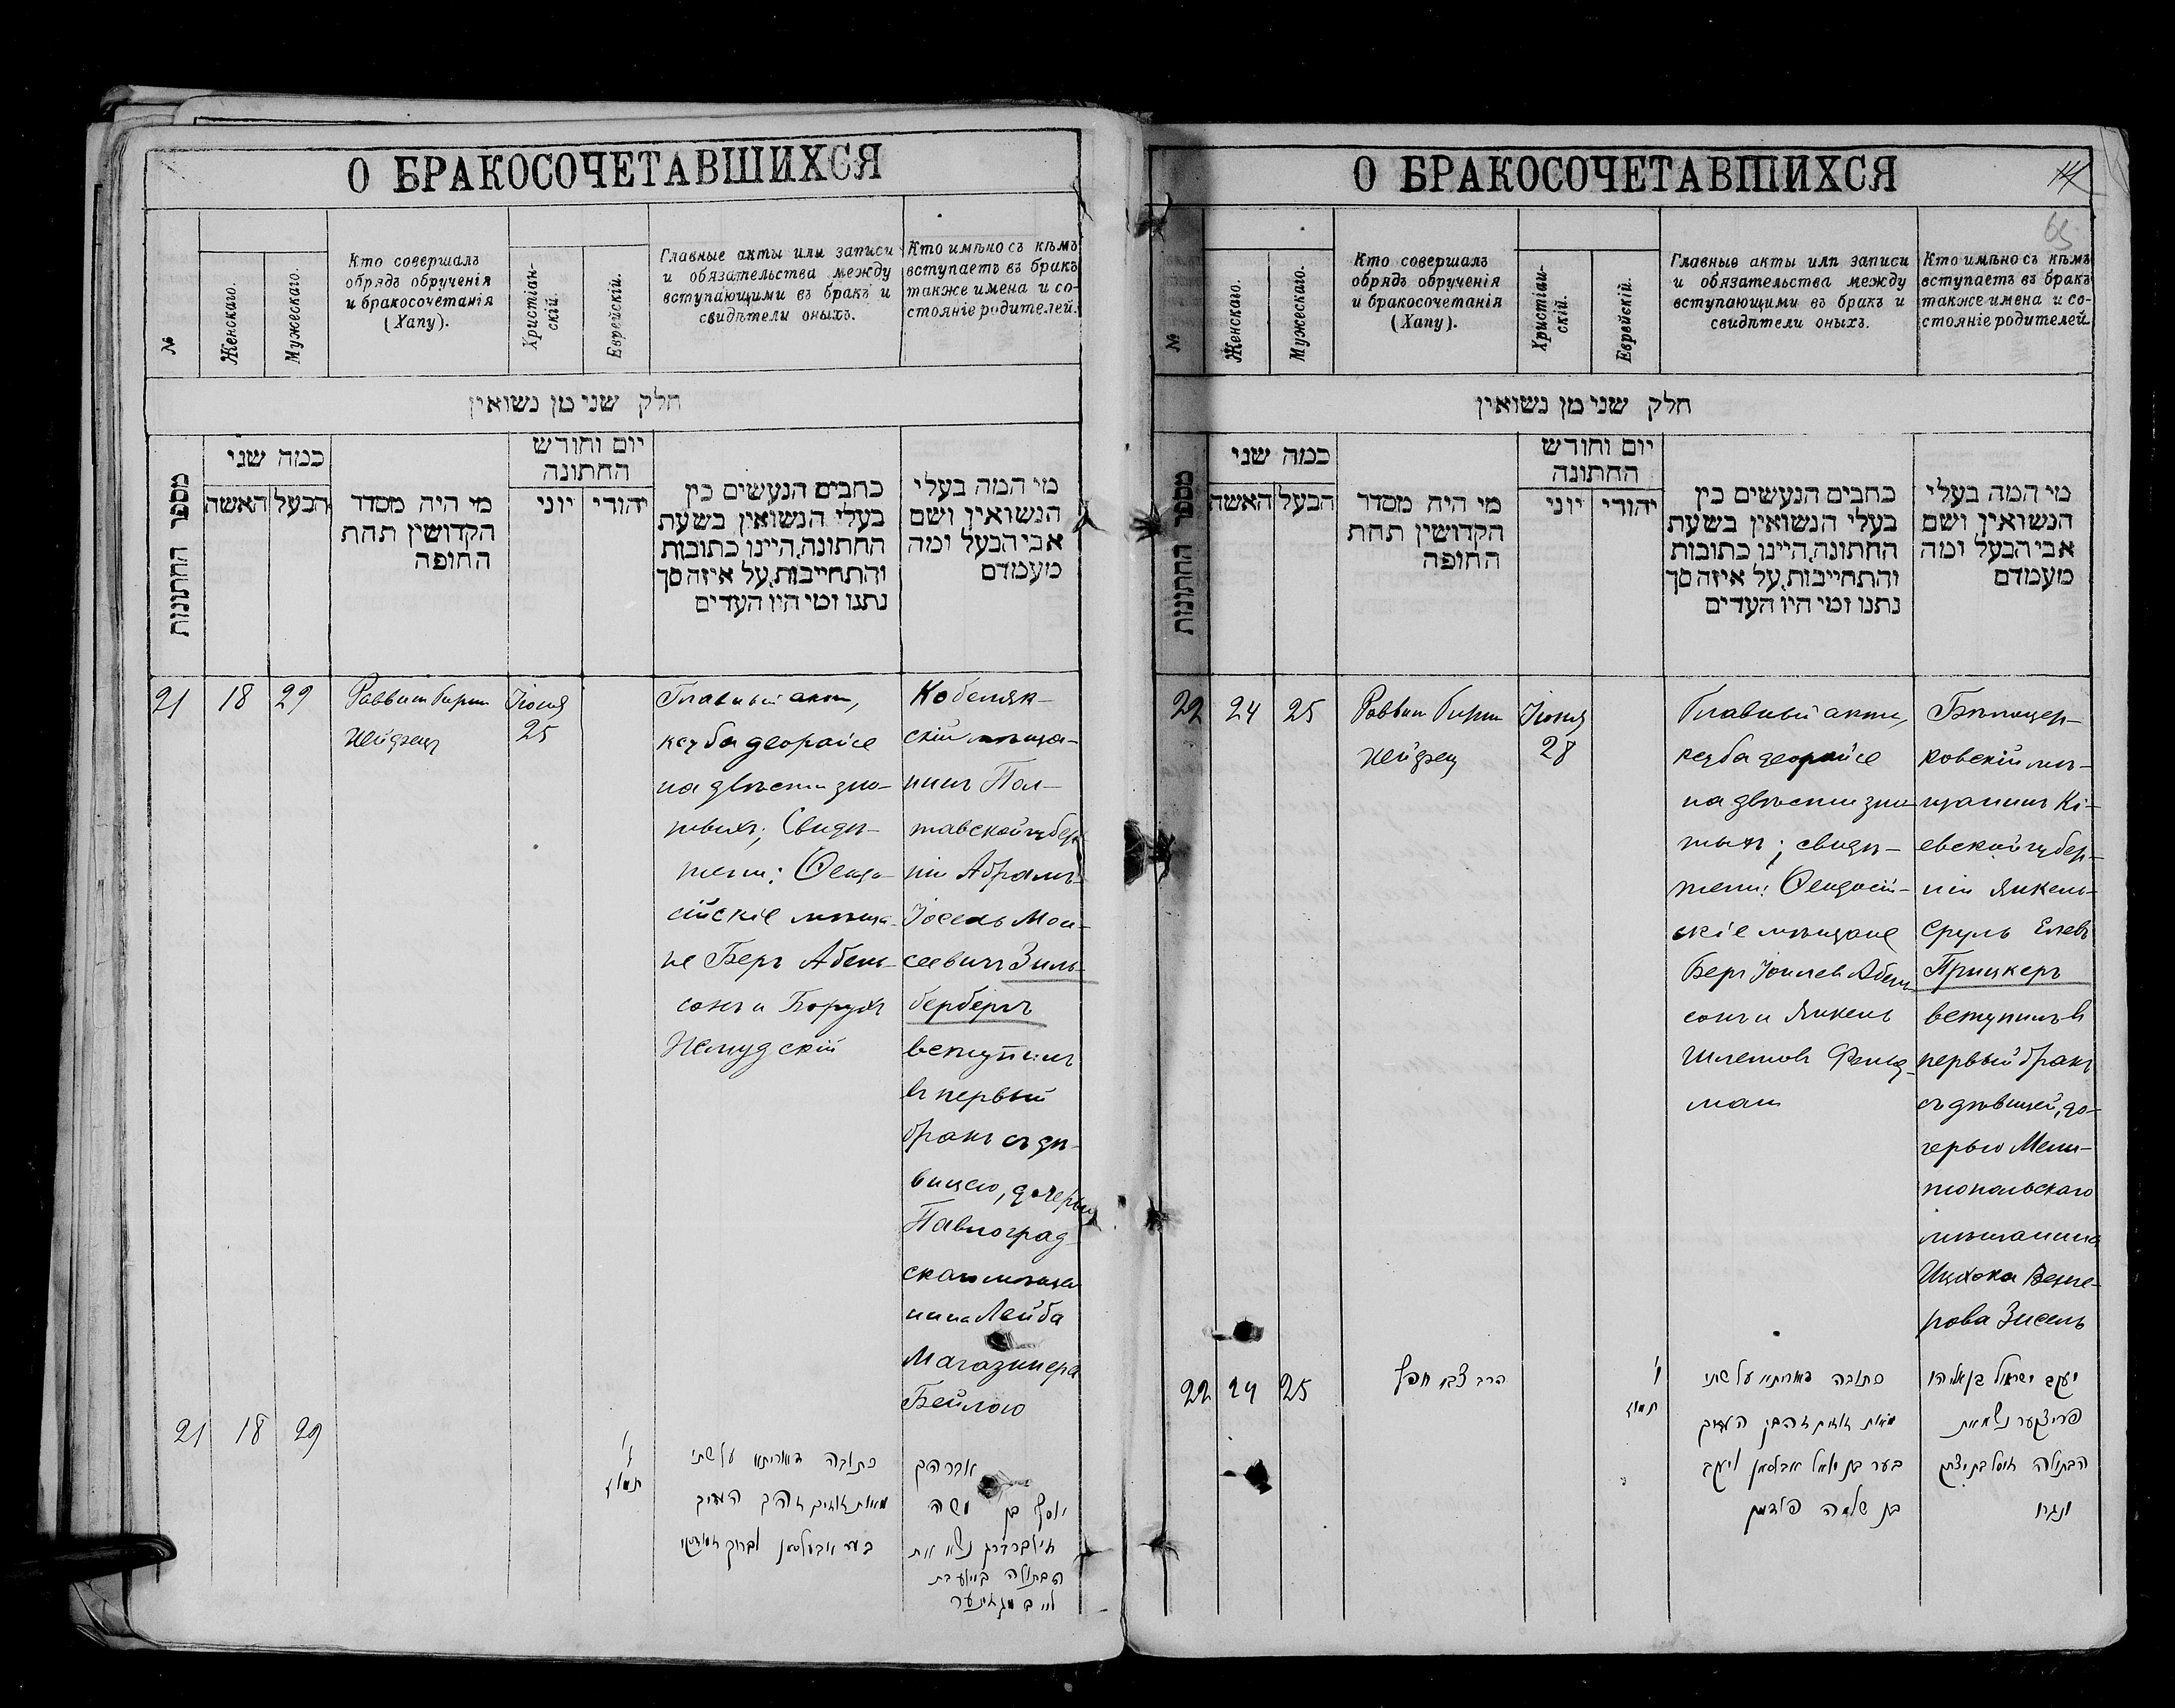 О БРАКОСОЧЕТАВШИХСЯ
№
Женскаго.
Мужескаго.
Кто совершалъ
обрядъ обрученія
и бракосочетанія
(Хапу).
Христіан-
скій.
Еврейскій.
Главные акты или записи
и обязательства между
вступающими въ бракъ и
свидѣтели оныхъ.
Кто имѣно съ кѣмъ
вступаетъ въ бракъ
также имена и со-
стояніе родителей.
חלק שני מן נשואין
מספר החתונות
כמה שני
הבעל האשה
מי היה מסדר
הקדושין תחת
החופה
יום וחודש
החתונה
יהודי יוני
כתבים הנעשים בין
בעלי הנשואין בשעת
החתונה, היינו כתובות
והתחייבות, על איזה סך
נתנו ומי היו העדים
מי המה בעלי
הנשואין ושם
אבי הבעל ומה
מעמדם
21 18 29
Раввин Гирш
Хейфец
Іюня
25
Главный актъ,
кеуба деорайсе
на двѣсти зло-
тыхъ; Свидѣ-
тели: Ѳеодо-
сійскіе мѣща-
не Беръ Абель-
сонъ и Борухъ
Кобеляк-
скій мѣща-
нинъ Пол-
тавской губер
ніи Абрамъ-
Іосель Мои-
сеевичъ Зиль-
бербергъ
вступилъ
въ первый
бракъ съ дѣ-
вицею, дочерью
Павлоград-
скаго мѣща
нина Лейба
Магазинера
Бейлою
21 18 29
ז׳
תמוז
כתובה דאוריתא על שתי
מאות זוזים זהב העדים
בער אבעלסאן
אברהם
יוסף בן משה
זילברברג נשא את
הבתולה ביילע בת
לייב מגאזינער
О БРАКОСОЧЕТАВШИХСЯ
14
65
№
Женскаго.
Мужескаго.
Кто совершалъ
обрядъ обрученія
и бракосочетанія
(Хапу).
Христіан-
скій.
Еврейскій.
Главные акты или записи
и обязательства между
вступающими въ бракъ и
свидѣтели оныхъ.
Кто имѣно съ кѣмъ
вступаетъ въ бракъ
также имена и со-
стояніе родителей.
חלק שני מן נשואין
מספר החתונות
כמה שני
הבעל האשה
מי היה מסדר
הקדושין תחת
החופה
יום וחודש
החתונה
יהודי יוני
כתבים הנעשים בין
בעלי הנשואין בשעת
החתונה, היינו כתובות
והתחייבות, על איזה סך
נתנו ומי היו העדים
מי המה בעלי
הנשואין ושם
אבי הבעל ומה
מעמדם
22 24 25
Раввин Гирш
Хейфец
Іюня
28
Главный актъ,
кеуба деорайсе
на двѣсти зло
тыхъ; свидѣ-
тели: Ѳеодосій-
скіе мѣщане
Беръ Іоилев Абель-
сонъ и Янкель
Шлемовъ Фельд-
ман
Бѣлоцер-
ковскій мѣ-
щанинъ Кі-
евской губер-
ніи Янкель-
Сруль Елевъ
Прицкеръ
вступилъ въ
первый бракъ
съ дѣвицей, до-
черью Мели-
топольскаго
мѣщанина
Ицхока
Зисель
22 24 25
הרב צבי חפץ
י׳
תמוז
כתובה דאוריתא על שתי
מאות זוזים זהב העדים
בער בן יואל אבלסאן ויעקב
בן שלמה פילדמן
יעקב ישראל בן אליהו
פריצקער נשא את
הבתולה זיסל בת יצחק